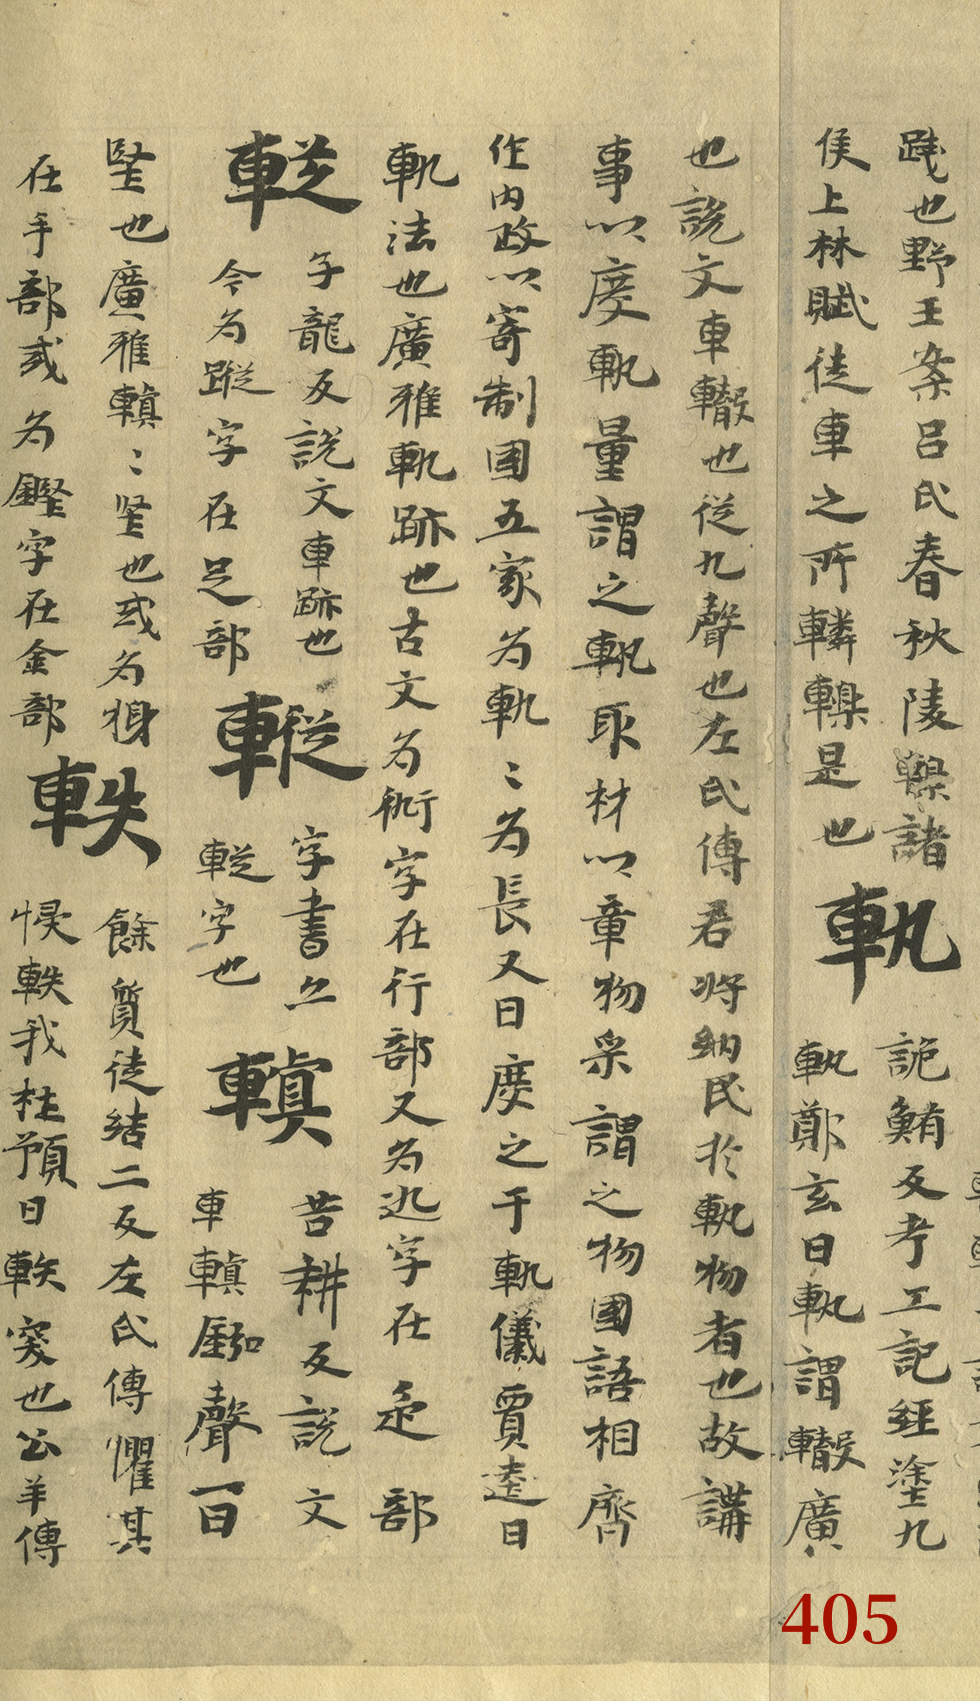 踐也野王案呂氏春秋陵轢諸
侯上林賦徒車之所轔轢是也 軌 詭鮪反考工記經塗九
軌鄭玄曰軌謂轍廣
也說文車轍也從九聲也左氏傳君將納民於軌物者也故講
事以度軌量謂之軌取材以章物采謂之物國語相齊
作內政以寄制國五家為軌〻為長又曰度之于軌儀賈逵曰
軌法也廣雅軌跡也古文為𨒌字在行部又為迒字在辵部
𨌰 子龍反說文車跡也
今為蹤字在足部 𨎢 字書亦
𨌰字也 轒 苦耕反說文
車轒鈏聲一曰
堅也廣雅轒〻堅也或為摼 軼 餘質徒結二反左氏傳懼其
在手部或為鏗字在金部 侵軼我杜預曰軼突也公羊傳
405